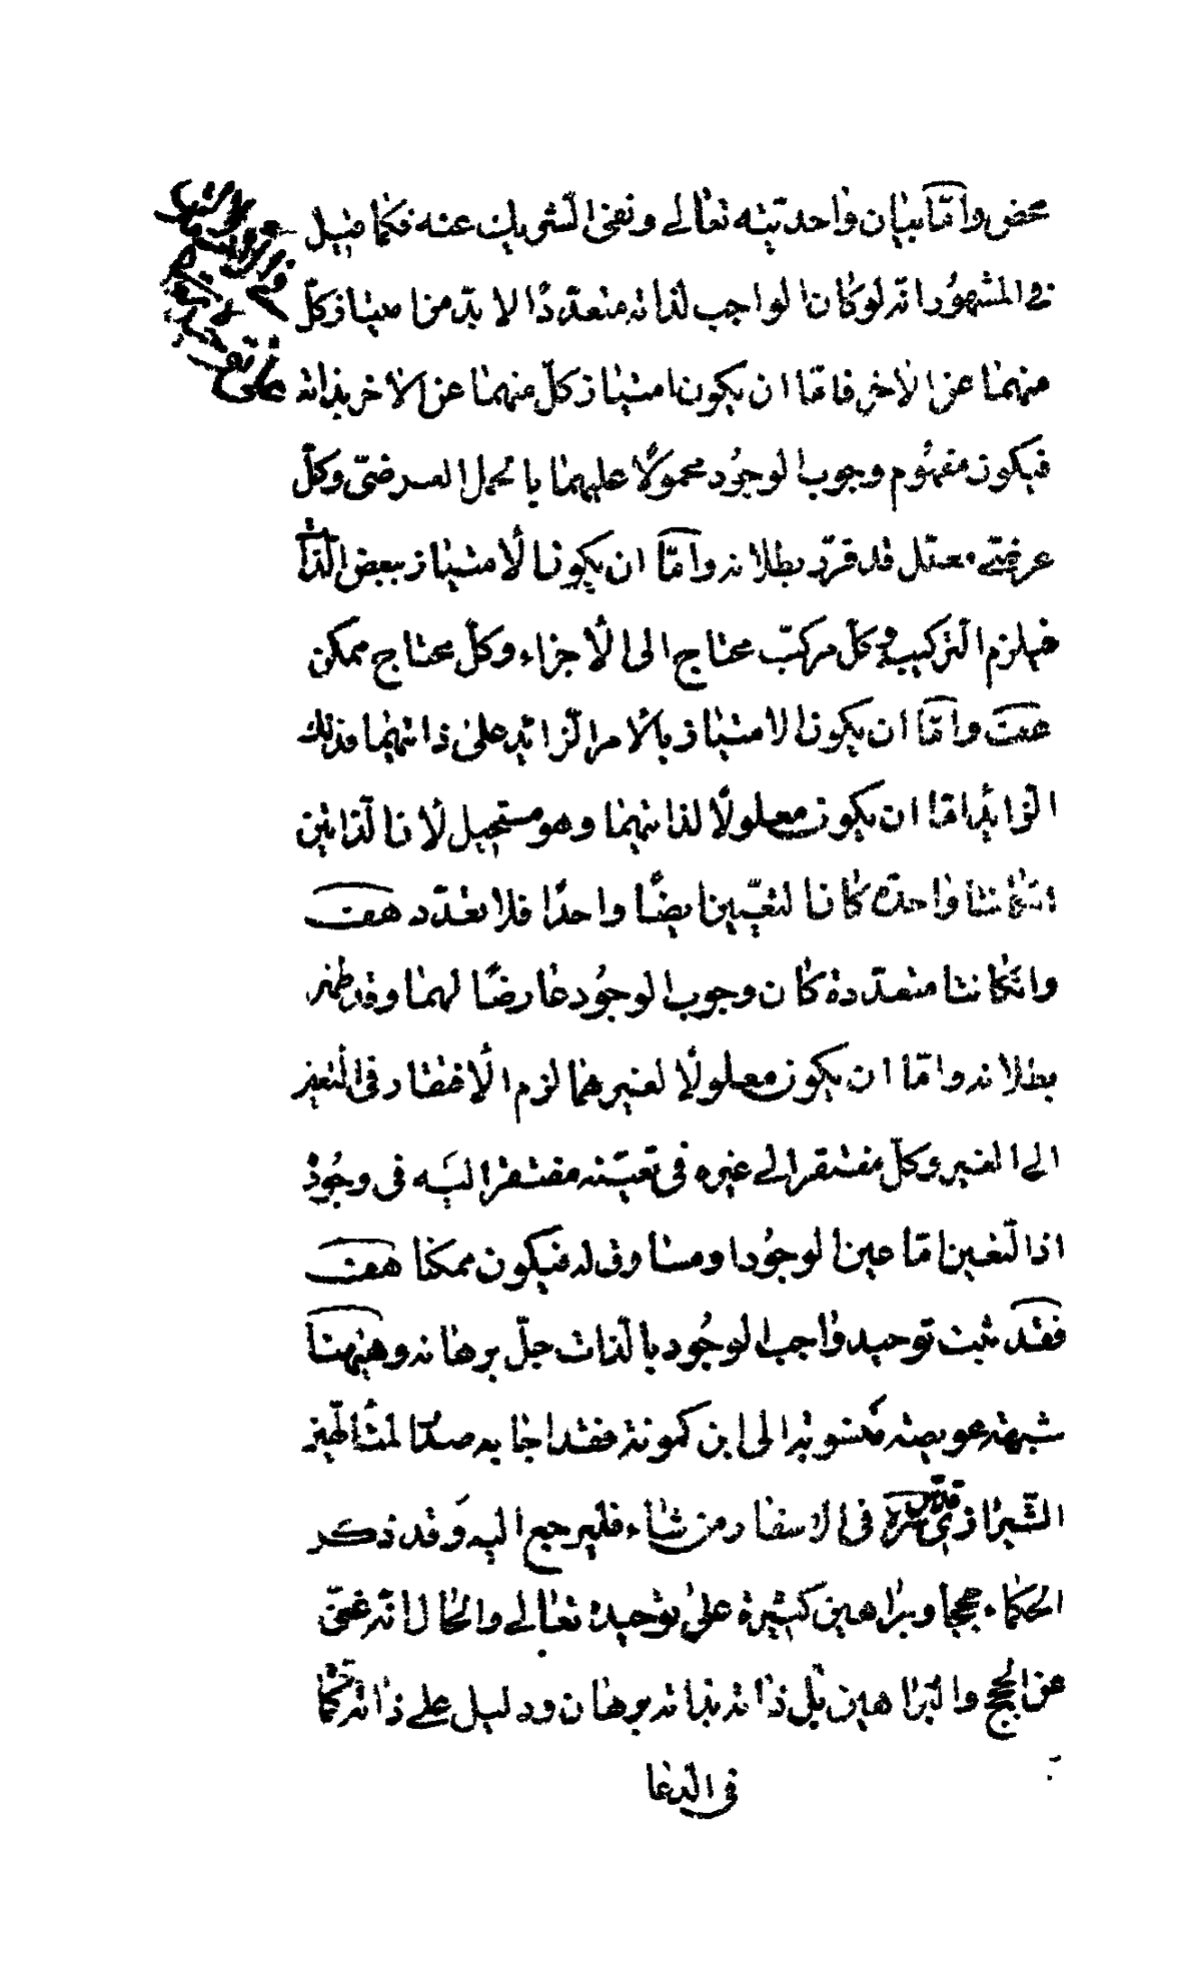 محض وامّا بيان واحديّته تعالى ونفى الشّريك عنه فكما قيل
فى المشهور انّه لو كان الواجب لذاته متعدّدًا لا بدّ من امتياز كلّ
منهما عن الاخر فامّا ان يكون امتياز كلّ منهما عن الاخر بذاته
فيكون مفهوم وجوب الوجود محمولًا عليهما بالحمل العرضىّ وكلّ
عرضىّ معلّل قد قرّر بطلانه وامّا ان يكون الامتياز ببعض الذّات
فيلزم التركيب وكلّ مركّب محتاج الى الأجزاء وكلّ محتاج ممكن
هف وامّا ان يكون الامتياز بالأمر الزّائد على ذاتيهما فذلك
الزائد امّا ان يكون معلولًا لذاتيهما وهو مستحيل لأن الذاتين
ان كانتا واحدة كان التعيّن ايضًا واحدًا فلا تعدّد هف
وان كانتا متعدّدة كان وجوب الوجود عارضًا لهما وقد ظهر
بطلانه وامّا ان يكون معلولًا لغيرهما لزم الأفتقار فى التعين
الى الغير وكلّ مفتقر الى غيره فى تعيّنه مفتقر اليه فى وجوده
اذ التّعين امّا عين الوجود او مساوق له فيكون ممكنا هف
فقد ثبت توحيد واجب الوجود بالّذات جلّ برهانه وهيهنا
شبهة عويصة منسوبة الى ابن كمونة فقد اجاب صدر المتألّهين
الشّيرازى قدّس سرّه فى الاسفار من شاء فليرجع اليه وقد ذكر
الحكماء حججا وبراهين كثيرة على توحيده تعالى والحال انّه غنىّ
عن الحجج والبراهين بل ذاته بذاته برهان ودليل على ذاته كما
فى الدّعا